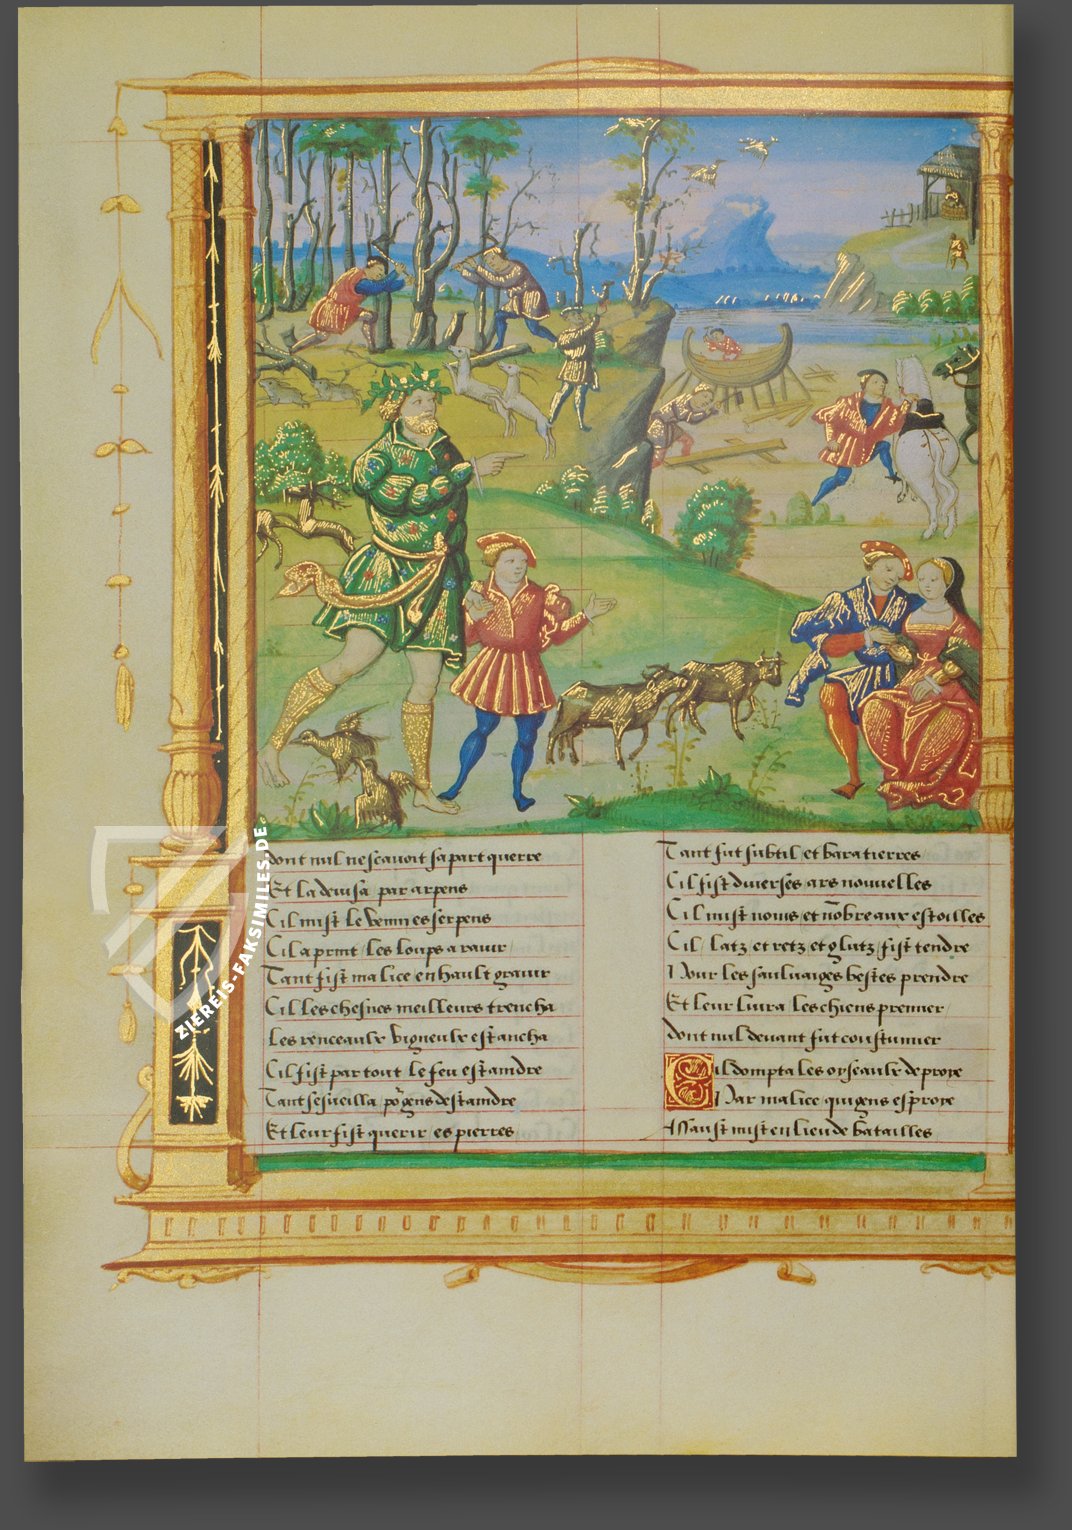 dont nul ne scauoit sa part querre
Et la deuisa par arpens
Cil mist le venin es serpens
Cil aprint / les loups a rauir /
Tant fist malice en hault grauir
Cil les chesnes meilleurs trencha
Les renceaulx vigneulx estancha
Cil fist par tout le feu estaindre
Tant sesueilla po gens destaindre
Et leur fist querir / es pierres
Tant fut subtil / et baratierres
Cil fist diuerses ars nouuelles
Cil mist noms / et nōbre aux estoilles
Cil / latz / et retz / et glutz / fist tendre
Pour les sauluaiges bestes prendre
Et leur liura / les chiens premier /
dont nul deuant fut coustumier
Cil dompta les oyseaulx de proye
Par malice / qui gens esproye
Haust mist en lieu de batailles
ZIEREIS-FAKSIMILES.DE